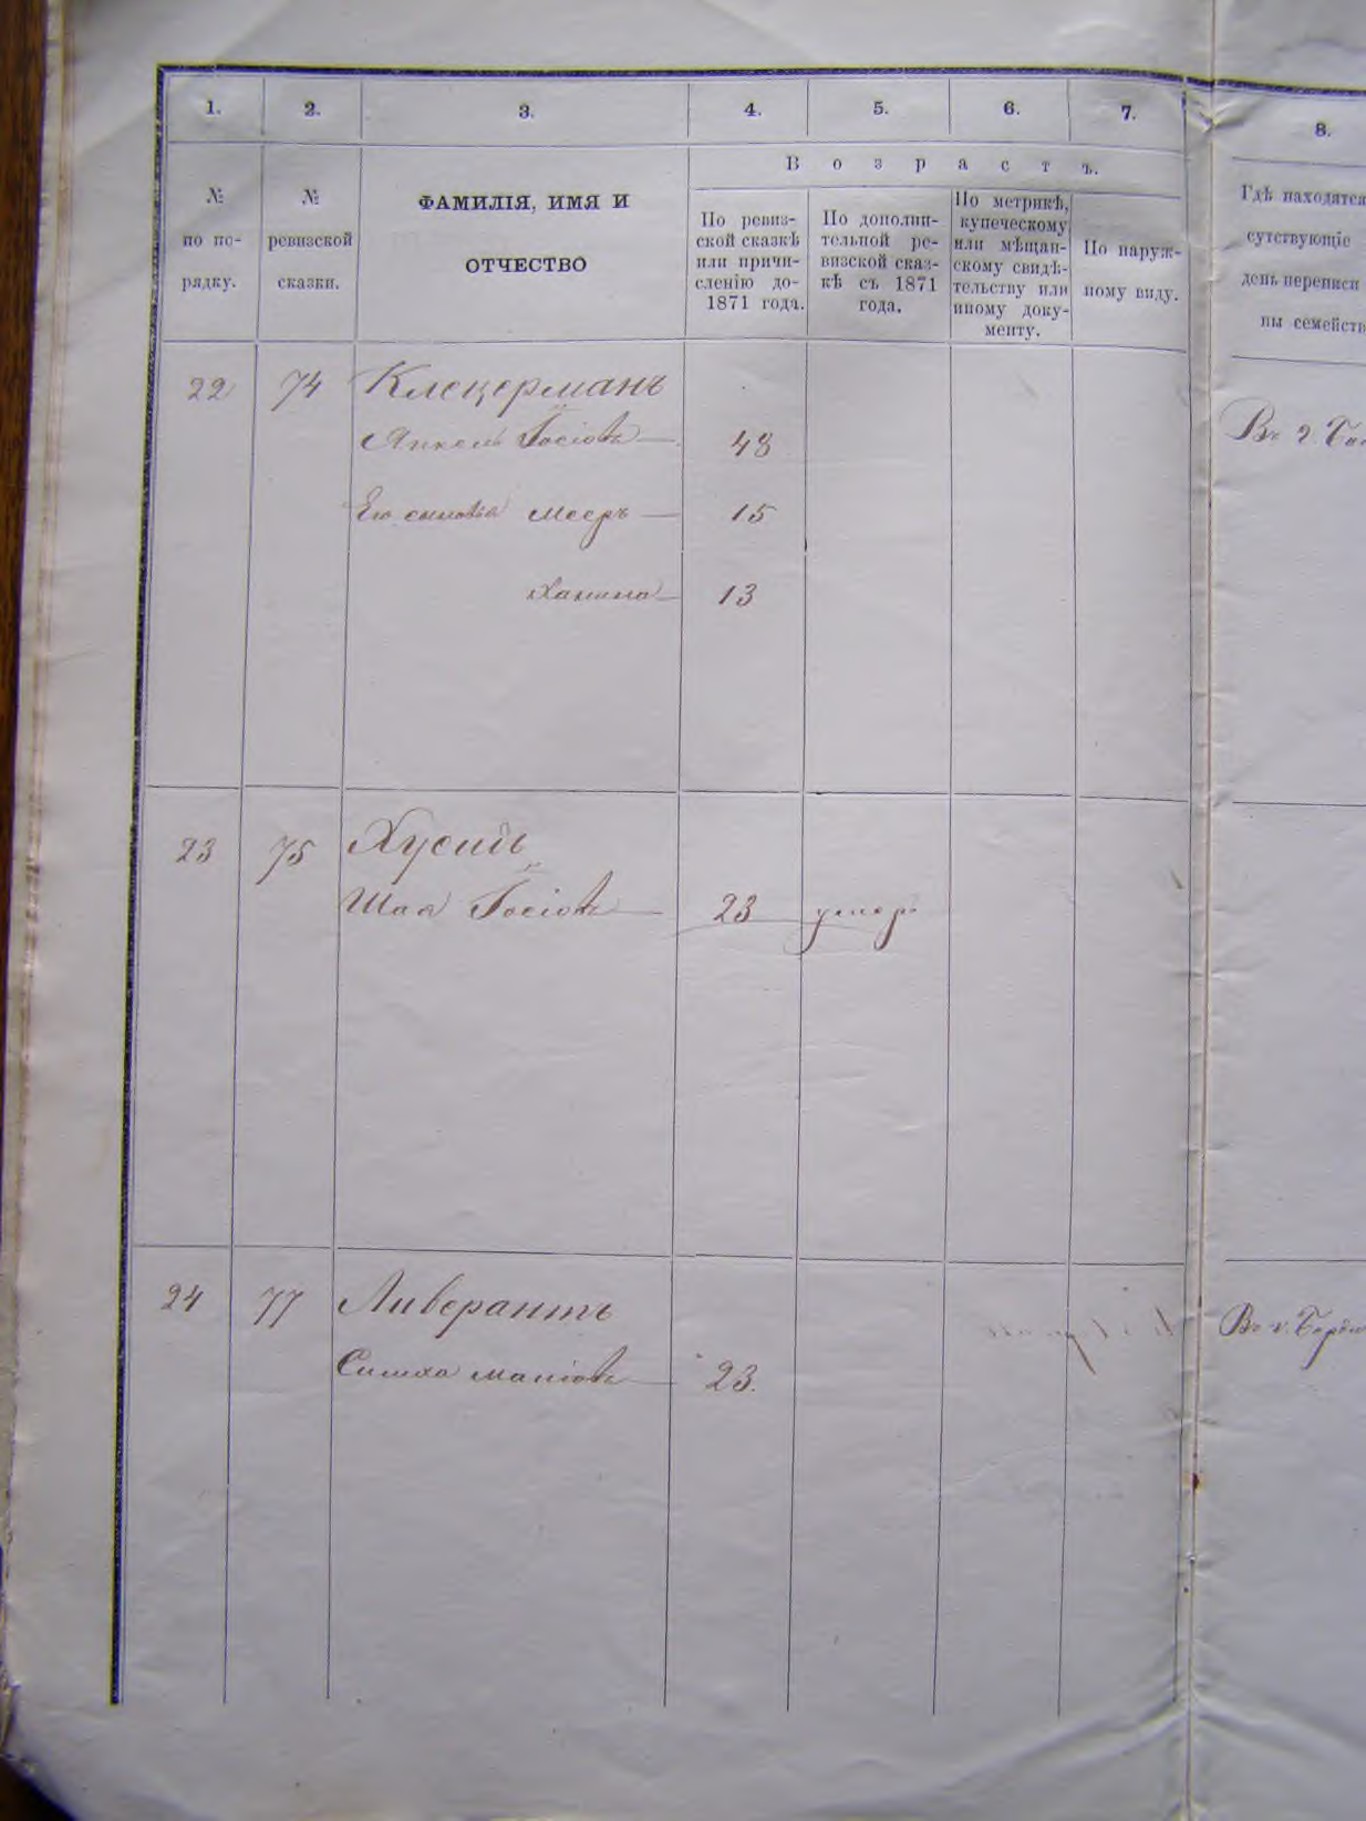 1.
2.
3.
4.
5.
6.
7.
8.
№
по по-
рядку.
№
ревизской
сказки.
ФАМИЛІЯ, ИМЯ И
ОТЧЕСТВО
Возрастъ.
По ревиз-
ской сказкѣ
или причи-
сленію до-
1871 года.
По дополни-
тельной ре-
визской сказ-
кѣ съ 1871
года.
По метрикѣ,
купеческому
или мѣщан-
скому свидѣ-
тельству или
иному доку-
менту.
По наруж-
ному виду.
Гдѣ находятся
сутствующіе
день переписи
ны семейств
22 74 Клецерманъ
Янкель Іосіовъ 48
Его сыновья Мееръ 15
Ханина 13
Въ г.
23 75 Хусидъ
Шая Іосіовъ 23 умеръ
24 77 Ливерантъ
Симха 23.
Въ